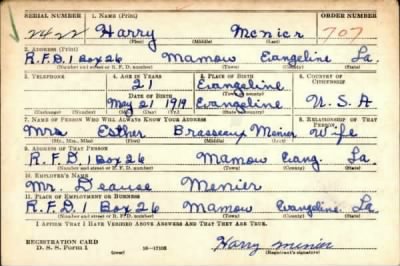 SERIAL NUMBER 1. NAME (Print) ORDER NUMBER
2422 Harry Menier 707
(First) (Middle) (Last)
2. ADDRESS (Print)
R.F.D. 1 Box 26 Mamow Evangeline La.
(Number and street or R. F. D. number) (Town) (County) (State)
3. TELEPHONE 4. AGE IN YEARS 5. PLACE OF BIRTH 6. COUNTRY OF CITIZENSHIP
21 Evangeline
DATE OF BIRTH (Town or county)
May 21 1919 Evangeline U.S.A
(Exchange) (Number) (Mo.) (Day) (Yr.) (State or country)
7. NAME OF PERSON WHO WILL ALWAYS KNOW YOUR ADDRESS 8. RELATIONSHIP OF THAT PERSON
Mrs Esther Brasseaux Menier Wife
(Mr., Mrs., Miss) (First) (Middle) (Last)
9. ADDRESS OF THAT PERSON
R.F.D. 1 Box 26 Mamow Evang. La.
(Number and street or R. F. D. number) (Town) (County) (State)
10. EMPLOYER'S NAME
Mr. Menier
11. PLACE OF EMPLOYMENT OR BUSINESS
R.F.D. 1 Box 26 Mamow Evangeline La.
(Number and street or R. F. D. number) (Town) (County) (State)
I AFFIRM THAT I HAVE VERIFIED ABOVE ANSWERS AND THAT THEY ARE TRUE.
REGISTRATION CARD
D. S. S. Form 1 (over) 16—17105 Harry menier
(Registrant's signature)